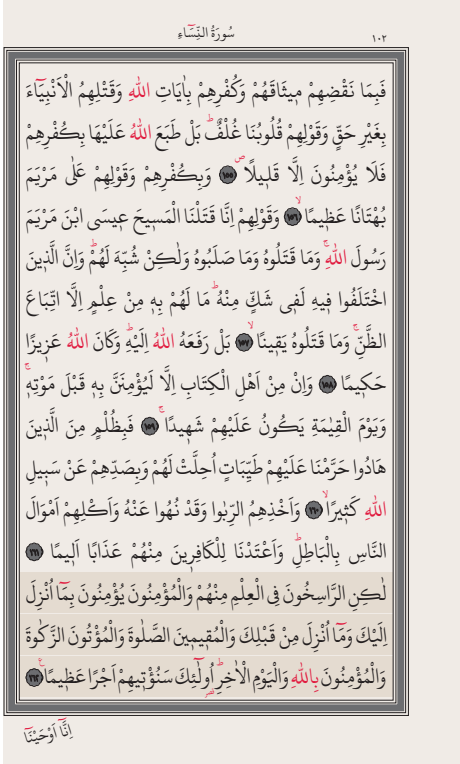 سُورَةُ النِّسَاءِ
١٠٢
فَبِمَا نَقْضِهِمْ م۪يثَاقَهُمْ وَكُفْرِهِمْ بِاٰيَاتِ اللّٰهِ وَقَتْلِهِمُ الْاَنْبِيَٓاءَ
بِغَيْرِ حَقٍّ وَقَوْلِهِمْ قُلُوبُنَا غُلْفٌۜ بَلْ طَبَعَ اللّٰهُ عَلَيْهَا بِكُفْرِهِمْ
فَلَا يُؤْمِنُونَ اِلَّا قَل۪يلًاۖ ﴿١٥٥﴾ وَبِكُفْرِهِمْ وَقَوْلِهِمْ عَلٰى مَرْيَمَ
بُهْتَانًا عَظ۪يمًاۙ ﴿١٥٦﴾ وَقَوْلِهِمْ اِنَّا قَتَلْنَا الْمَس۪يحَ ع۪يسَى ابْنَ مَرْيَمَ
رَسُولَ اللّٰهِۚ وَمَا قَتَلُوهُ وَمَا صَلَبُوهُ وَلٰكِنْ شُبِّهَ لَهُمْۜ وَاِنَّ الَّذ۪ينَ
اخْتَلَفُوا ف۪يهِ لَف۪ي شَكٍّ مِنْهُۜ مَا لَهُمْ بِه۪ مِنْ عِلْمٍ اِلَّا اتِّبَاعَ
الظَّنِّۚ وَمَا قَتَلُوهُ يَق۪ينًاۙ ﴿١٥٧﴾ بَلْ رَفَعَهُ اللّٰهُ اِلَيْهِۜ وَكَانَ اللّٰهُ عَز۪يزًا
حَك۪يمًا ﴿١٥٨﴾ وَاِنْ مِنْ اَهْلِ الْكِتَابِ اِلَّا لَيُؤْمِنَنَّ بِه۪ قَبْلَ مَوْتِه۪ۚ
وَيَوْمَ الْقِيٰمَةِ يَكُونُ عَلَيْهِمْ شَه۪يدًاۚ ﴿١٥٩﴾ فَبِظُلْمٍ مِنَ الَّذ۪ينَ
هَادُوا حَرَّمْنَا عَلَيْهِمْ طَيِّبَاتٍ اُحِلَّتْ لَهُمْ وَبِصَدِّهِمْ عَنْ سَب۪يلِ
اللّٰهِ كَث۪يرًاۙ ﴿١٦٠﴾ وَاَخْذِهِمُ الرِّبٰوا وَقَدْ نُهُوا عَنْهُ وَاَكْلِهِمْ اَمْوَالَ
النَّاسِ بِالْبَاطِلِۜ وَاَعْتَدْنَا لِلْكَافِر۪ينَ مِنْهُمْ عَذَابًا اَل۪يمًا ﴿١٦١﴾
لٰكِنِ الرَّاسِخُونَ فِي الْعِلْمِ مِنْهُمْ وَالْمُؤْمِنُونَ يُؤْمِنُونَ بِمَٓا اُنْزِلَ
اِلَيْكَ وَمَٓا اُنْزِلَ مِنْ قَبْلِكَ وَالْمُق۪يم۪ينَ الصَّلٰوةَ وَالْمُؤْتُونَ الزَّكٰوةَ
وَالْمُؤْمِنُونَ بِاللّٰهِ وَالْيَوْمِ الْاٰخِرِۜ اُو۬لٰٓئِكَ سَنُؤْت۪يهِمْ اَجْرًا عَظ۪يمًا۟ ﴿١٦٢﴾
اِنَّٓا اَوْحَيْنَٓا